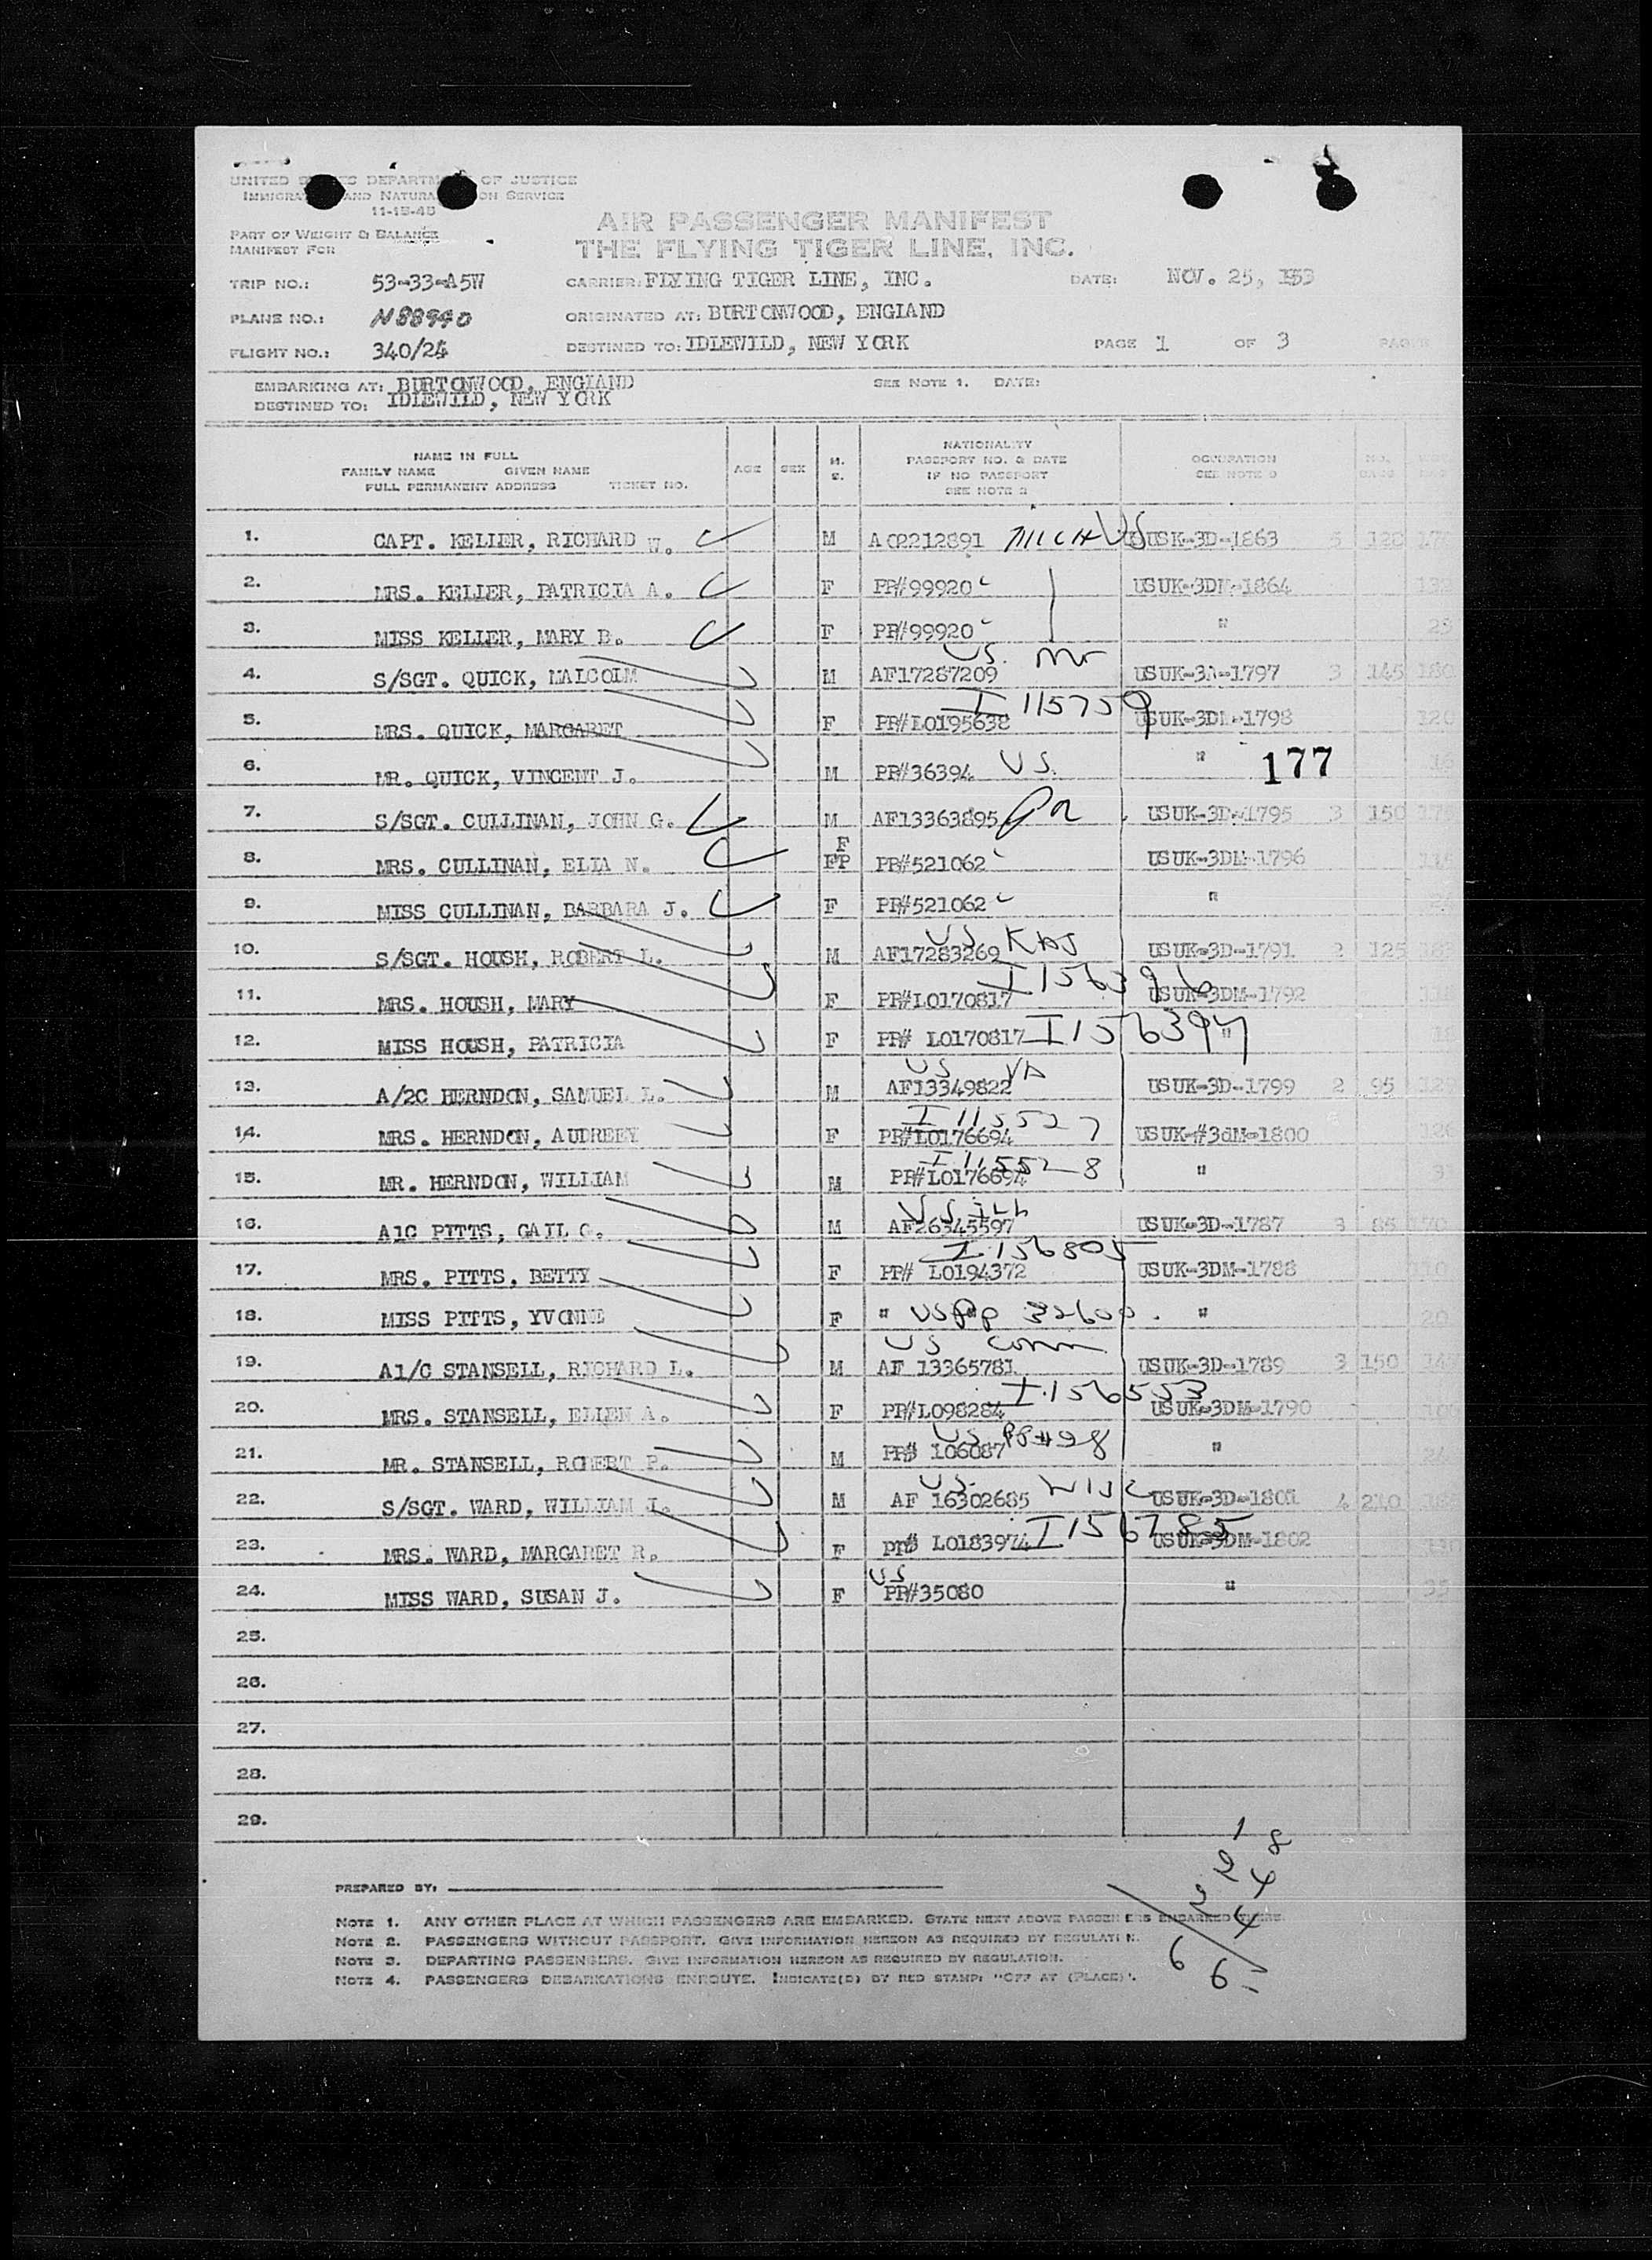 UNITED STATES DEPARTMENT OF JUSTICE
IMMIGRATION AND NATURALIZATION SERVICE
11-15-45
PART OF WEIGHT & BALANCE
MANIFEST FOR
AIR PASSENGER MANIFEST
THE FLYING TIGER LINE, INC.
TRIP NO.: 53-33-A5W CARRIER: FLYING TIGER LINE, INC. DATE: NOV. 25, 1953
PLANE NO.: N88940 ORIGINATED AT: BURTONWOOD, ENGLAND
FLIGHT NO.: 340/24 DESTINED TO: IDLEWILD, NEW YORK PAGE 1 OF 3 PAGES
EMBARKING AT: BURTONWOOD, ENGLAND SEE NOTE 1. DATE:
DESTINED TO: IDLEWILD, NEW YORK
NAME IN FULL
FAMILY NAME GIVEN NAME
FULL PERMANENT ADDRESS TICKET NO.
AGE SEX M. S.
NATIONALITY
PASSPORT NO. & DATE
IF NO PASSPORT
SEE NOTE 2
OCCUPATION
SEE NOTE 3
NO. BAGS
1. CAPT. KELLER, RICHARD W. M AO2212891 MICH US USUK-3D-1863 5 120 170
2. MRS. KELLER, PATRICIA A. F PP#99920 USUK-3DM-1864 132
3. MISS KELLER, MARY B. F PP#99920 " 25
4. S/SGT. QUICK, MALCOLM M AF17287209 US. USUK-3D-1797 3 145 180
5. MRS. QUICK, MARGARET F PP#L0195638 I 115759 USUK-3DM-1798 120
6. MR. QUICK, VINCENT J. M PP#36394 US. " 16
177
7. S/SGT. CULLINAN, JOHN G. M AF13363895 Pa USUK-3D-1795 3 150
8. MRS. CULLINAN, ELLA N. F FP PP#521062 USUK-3DM-1796 115
9. MISS CULLINAN, BARBARA J. F PP#521062 "
10. S/SGT. HOUSH, ROBERT L. M AF17283269 US KAS USUK-3D-1791 2 125
11. MRS. HOUSH, MARY F PP#L0170817 I156396 USUK-3DM-1792
12. MISS HOUSH, PATRICIA F PP# L0170817 I156397 "
13. A/2C HERNDON, SAMUEL L. M AF13349822 US VA USUK-3D-1799 2 95
14. MRS. HERNDON, AUDREEY F PP#L0176694 I 115527 USUK-#3dM-1800
15. MR. HERNDON, WILLIAM M PP#L0176694 I 115528 "
16. A1C PITTS, GAIL G. M AF26345597 US ILL USUK-3D-1787 3 85 170
17. MRS. PITTS, BETTY F PP# L0194372 I 156805 USUK-3DM-1788 110
18. MISS PITTS, YVONNE F " US PP 32600 " 20
19. A1/C STANSELL, RICHARD L. M AF 13365781 US Conn USUK-3D-1789 3 150
20. MRS. STANSELL, ELLEN A. F PP#L098284 I.156553 USUK-3DM-1790 100
21. MR. STANSELL, ROBERT P. M PP# 106087 US PP#28 " 24
22. S/SGT. WARD, WILLIAM I. M AF 16302685 US. WISC USUK-3D-1801 4 210
23. MRS. WARD, MARGARET R. F pp# L0183974 I156785 USUK-3DM-1802
24. MISS WARD, SUSAN J. F US PP#35080 " 35
25.
26.
27.
28.
29.
PREPARED BY:
NOTE 1. ANY OTHER PLACE AT WHICH PASSENGERS ARE EMBARKED. STATE NEXT ABOVE PASSENGERS EMBARKED THERE.
NOTE 2. PASSENGERS WITHOUT PASSPORT. GIVE INFORMATION HEREON AS REQUIRED BY REGULATION.
NOTE 3. DEPARTING PASSENGERS. GIVE INFORMATION HEREON AS REQUIRED BY REGULATION.
NOTE 4. PASSENGERS DEBARKATIONS ENROUTE. INDICATE(D) BY RED STAMP: "OFF AT (PLACE)".